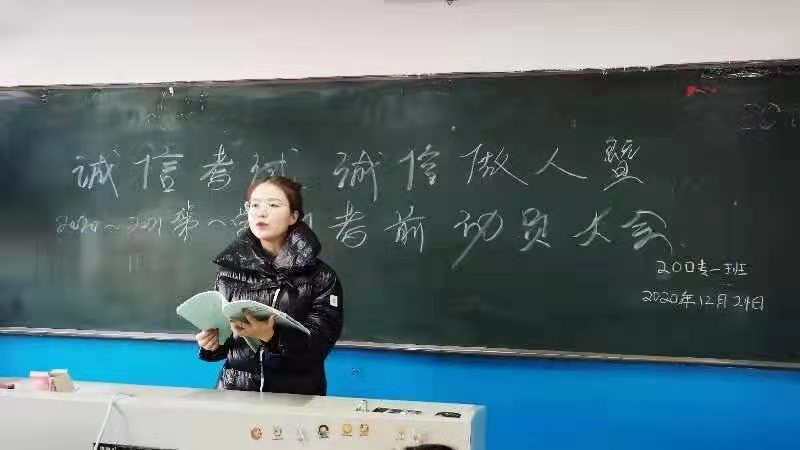 诚信考试 诚信做人暨
2020~2021第一 考前动员大会
20口专一班
2020年12月29日